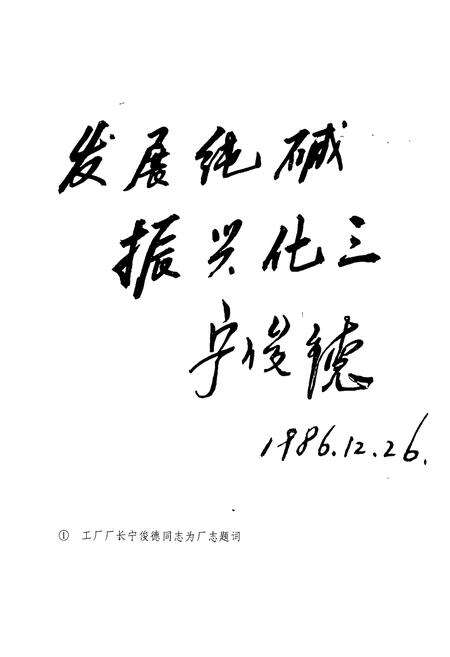 发展纯碱
振兴化三
宁俊德
1986.12.26.
① 工厂厂长宁俊德同志为厂志题词